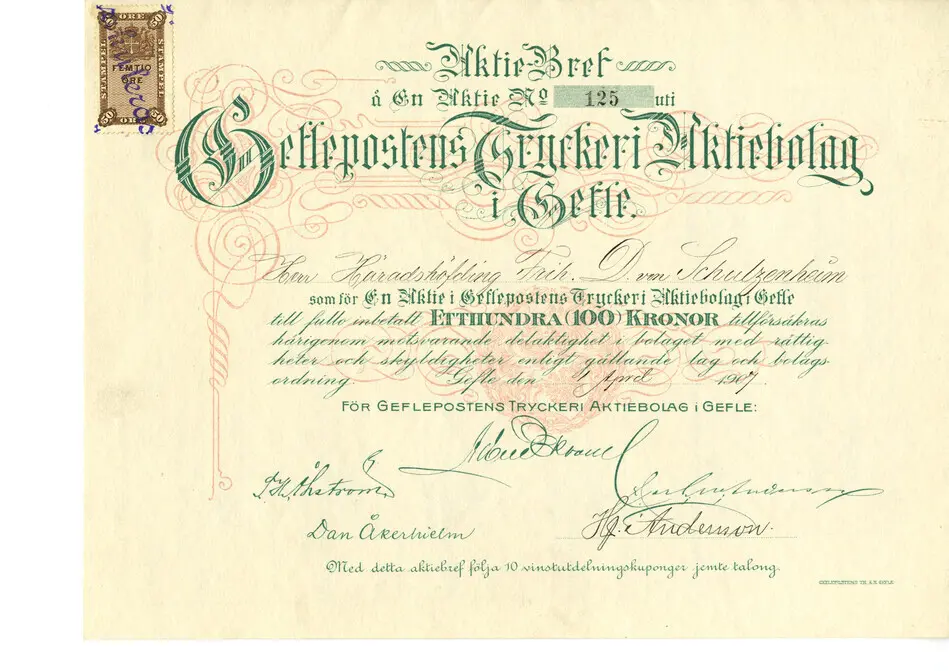 50 ÖRE 50
STAMPEL STAMPEL
FEMTIO
ÖRE
50 ÖRE 50
Aktie-Bref
å En Aktie No 125 uti
Geflepostens Tryckeri Aktiebolag
i Gefle.
Herr Häradshöfding Frih. D. von Schulzenheim
som för En Aktie i Geflepostens Tryckeri Aktiebolag i Gefle
till fullo inbetalt ETTHUNDRA (100) KRONOR tillförsäkras
härigenom motsvarande delaktighet i bolaget med rättig-
heter och skyldigheter enligt gällande lag och bolags-
ordning. Gefle den 4 April 1907.
FÖR GEFLEPOSTENS TRYCKERI AKTIEBOLAG i GEFLE:
Åhström
Dan Åkerhielm Hj. Anderson.
Med detta aktiebref följa 10 vinstutdelningskuponger jemte talong.
GEFLEPOSTENS TR. A.B. GEFLE